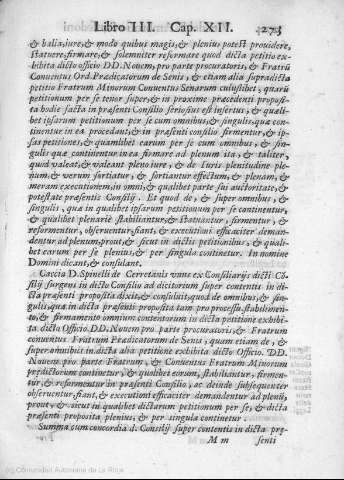 Libro III. Cap. XII. 273
& balia, iure, & modo quibus magis, & plenius potest prouidere,
statuere, firmare, & solemniter reformare quod dicta petitio ex-
hibita dicto officio DD. Nouem, pro parte procuratoris, & Fratrū
Conuentus Ord. Prædicatorum de Senis, & etiam alia supradicta
petitio Fratrum Minorum Conuentus Senarum culusibet, quarū
petitionum per se tenor super, & in proxime præcedenti proposi-
ta bodie facta in præsenti Consilio seriosius est insertus, & quali-
bet ipsarum petitionum per se cum omnibus, & singulis, quæ con-
tinentur in ea procedant, & in præsenti consilio firmentur, & ip-
sas petitiones, & quamlibet earum per se cum omnibus, & sin-
gulis quæ continentur in ea firmare ad plenum ita, & taliter,
quod valeat, & valeant pleno iure, & de iuris plenitudine ple-
num, & verum sortiatur, & sortiantur effectum, & plenam, &
meram executionem, in omni, & qualibet parte sui auctoritate, &
potestate præsentis Consilij. Et quod de, & super omnibus, &
singulis, quæ in qualibet ipsarum petitionum per se continentur,
& qualibet plenariè stabiliantur, & statuantur, firmentur, &
reformentur, obseruentur, fiant, & executioni efficaciter deman-
dentur ad plenum, prout, & sicut in dictis petitionibus, & quali-
bet earum per se plenius, & per singula continetur. In nomine
Domini dicant, & consulant.
Caccia D. Spinelli de Cerretanis vnus ex Consiliarijs dicti Cō-
silij surgens in dicto Consilio ad dicitorium super contentis in di-
cta præsenti proposita dixit, & consuluit, quod de omnibus, & sin-
gulis, quæ in dicta præsenti proposita tam pro processu, stabilimen-
to, & firmamento omnium contentorum in dicta petitione exhibi-
ta dicto Officio. DD. Nouem pro parte procuratoris, & Fratrum
conuentus Fratrum Prædicatorum de Senis, quam etiam de, &
super omnibus in dicta alia petitione exhibita dicto Officio. DD.
Nouem. pro parte Fratrum, & Conuentus Fratrum Minorum
prędictorum continetur, & qualibet earum, stabiliantur, firmen-
tur, & reformentur in præsenti Consilio, ac deinde subsequenter
obseruentur, fiant, & executioni efficaciter demandentur ad plenū,
prout, & sicut in qualibet dictarum petitionum per se, & dicta
præsenti proposita plenius, & per singula continetur.
Summa cum concordia d. Consilij super contentis in dicta præ-
M m senti
(c) Comunidad Autónoma de La Rioja